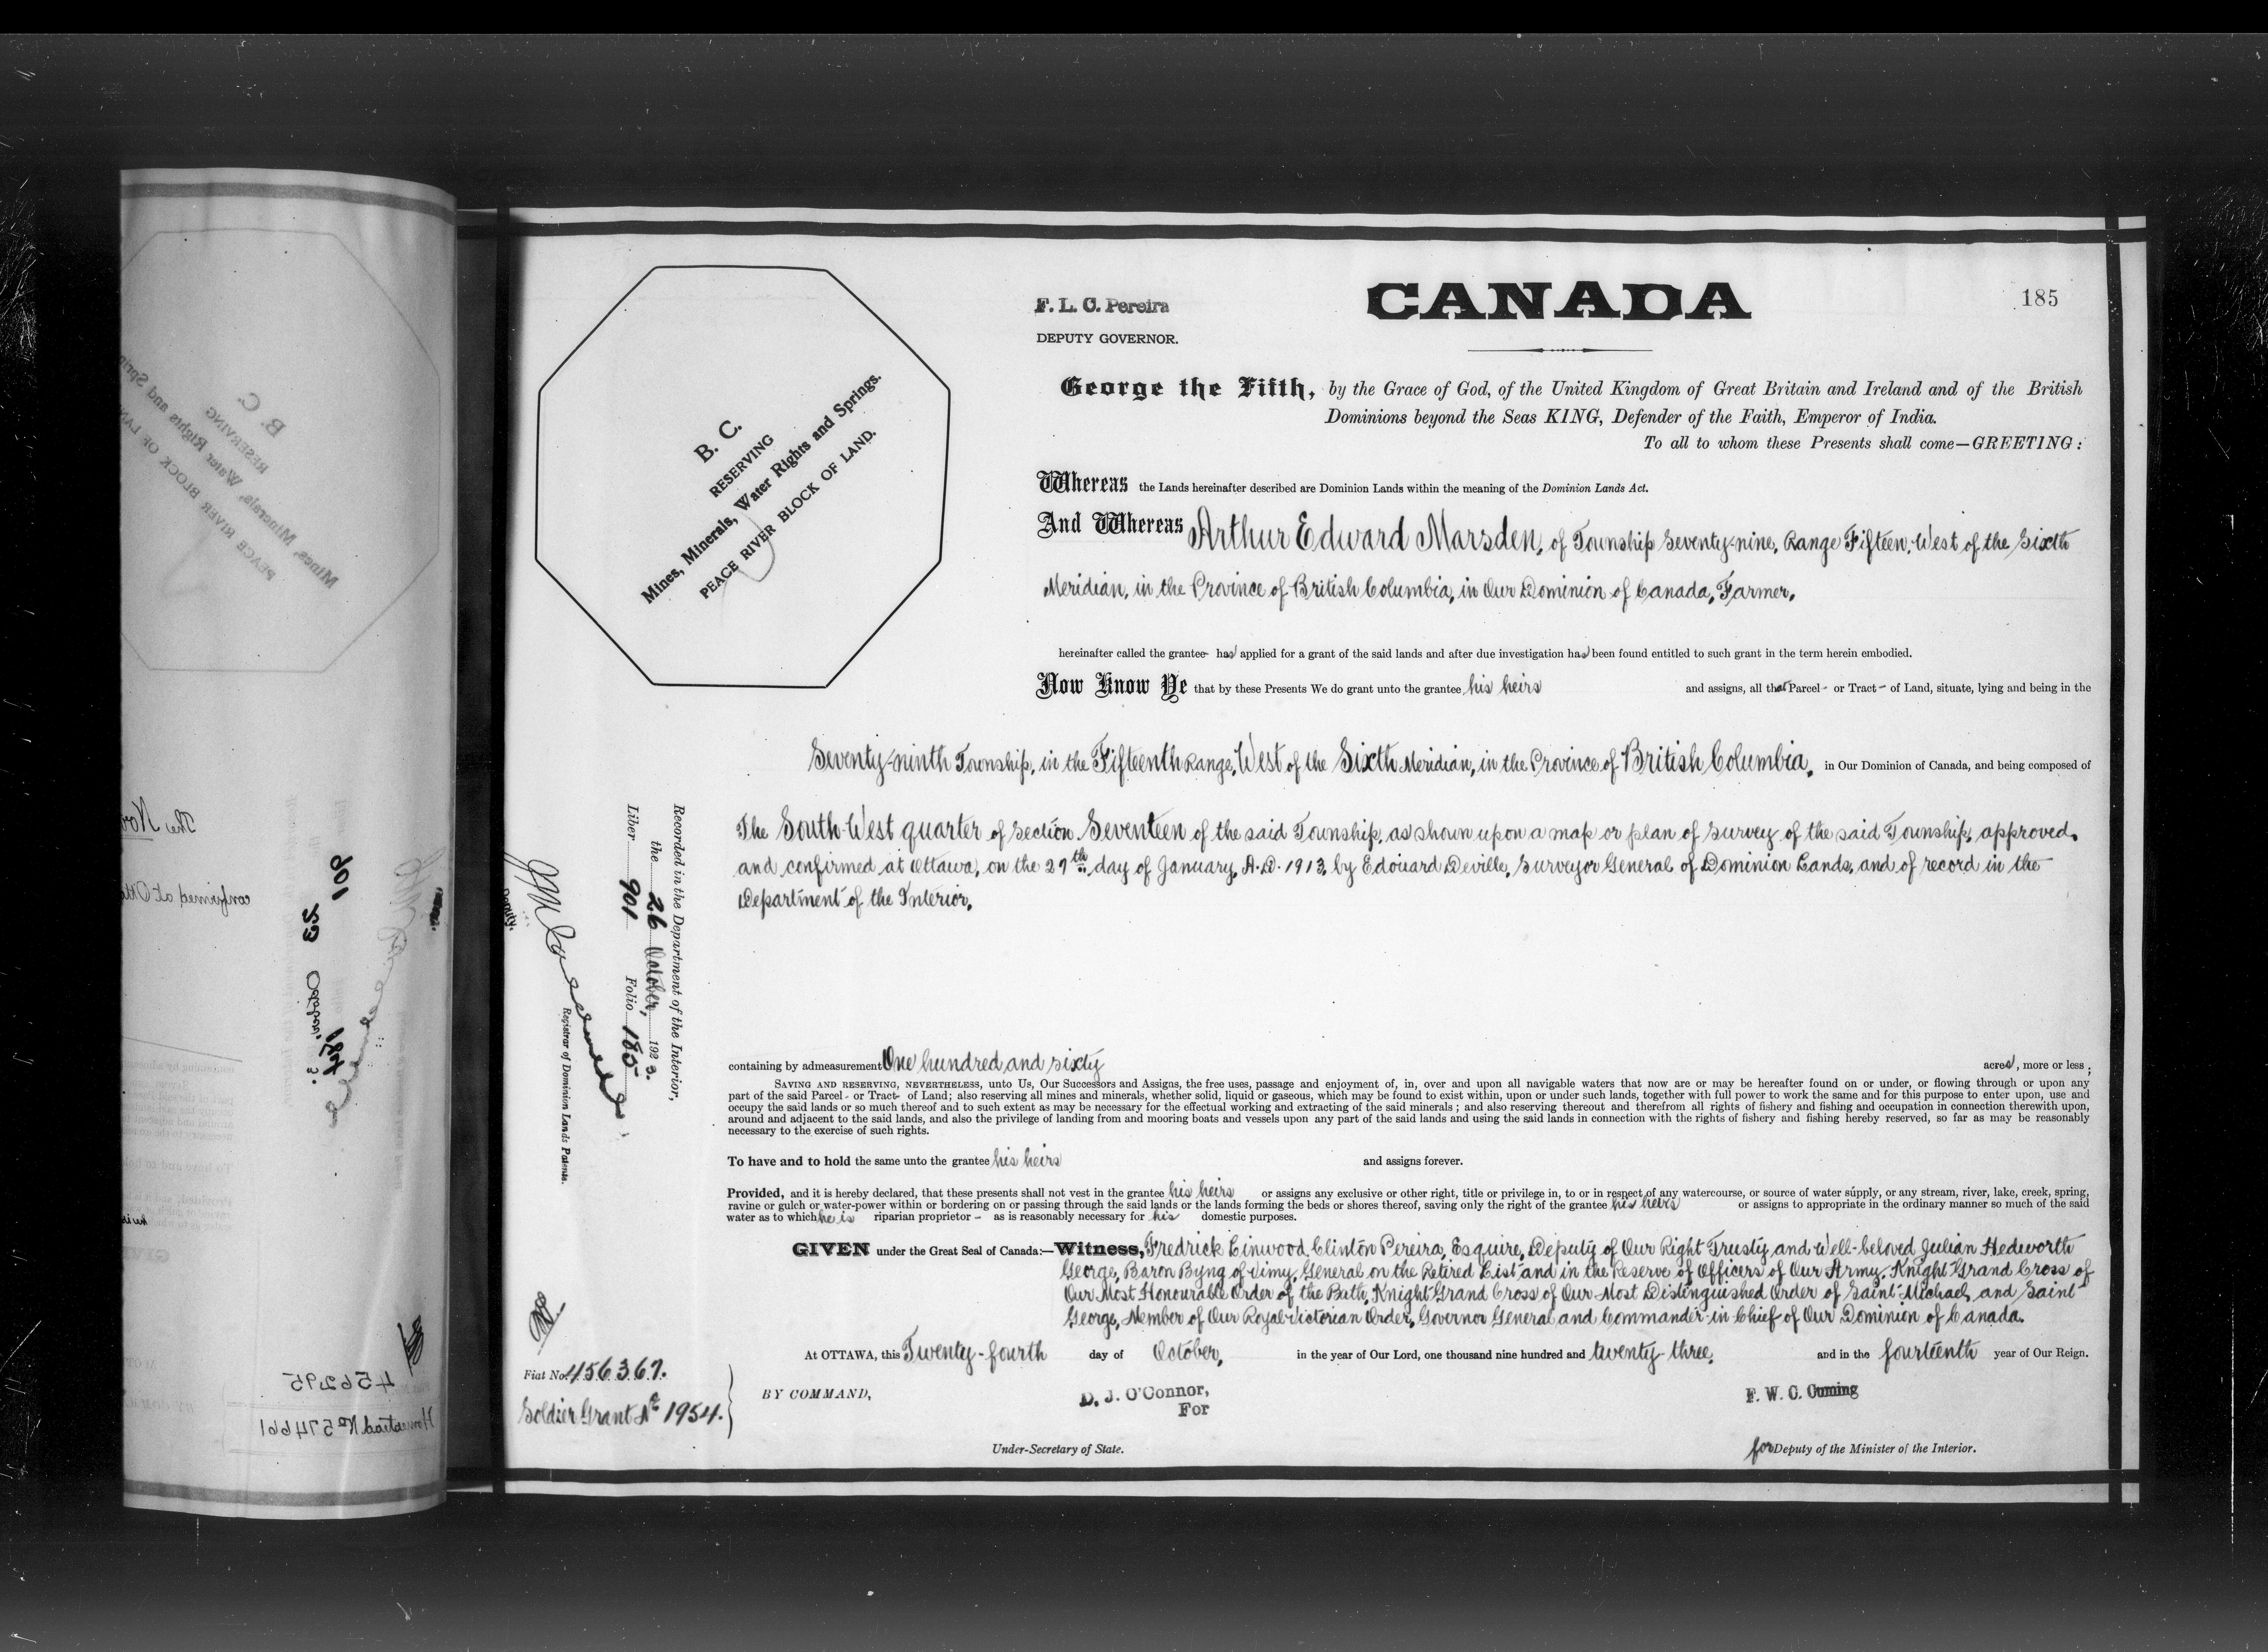 F. L. C. Pereira
DEPUTY GOVERNOR.
CANADA
185
B. C.
RESERVING
Mines, Minerals, Water Rights and Springs.
PEACE RIVER BLOCK OF LAND.
George the Fifth, by the Grace of God, of the United Kingdom of Great Britain and Ireland and of the British
Dominions beyond the Seas KING, Defender of the Faith, Emperor of India.
To all to whom these Presents shall come—GREETING:
Whereas the Lands hereinafter described are Dominion Lands within the meaning of the Dominion Lands Act.
And Whereas Arthur Edward Marsden, of Township Seventy-nine, Range Fifteen, West of the Sixth
Meridian, in the Province of British Columbia, in Our Dominion of Canada, Farmer,
hereinafter called the grantee- has applied for a grant of the said lands and after due investigation has been found entitled to such grant in the term herein embodied.
Now Know Ye that by these Presents We do grant unto the grantee his heirs and assigns, all that Parcel - or Tract - of Land, situate, lying and being in the
Seventy-ninth Township, in the Fifteenth Range, West of the Sixth Meridian, in the Province of British Columbia, in Our Dominion of Canada, and being composed of
The South West quarter of Section Seventeen of the said Township, as shown upon a map or plan of survey of the said Township, approved,
and confirmed at Ottawa, on the 27th day of January, A.D. 1913, by Edouard Deville, Surveyor General of Dominion Lands, and of record in the
Department of the Interior,
Recorded in the Department of the Interior,
the 26 October, 1923.
Liber 901 Folio 185
Registrar of Dominion Lands Patents.
Deputy.
containing by admeasurement One hundred and sixty acres, more or less ;
SAVING AND RESERVING, NEVERTHELESS, unto Us, Our Successors and Assigns, the free uses, passage and enjoyment of, in, over and upon all navigable waters that now are or may be hereafter found on or under, or flowing through or upon any
part of the said Parcel - or Tract - of Land; also reserving all mines and minerals, whether solid, liquid or gaseous, which may be found to exist within, upon or under such lands, together with full power to work the same and for this purpose to enter upon, use and
occupy the said lands or so much thereof and to such extent as may be necessary for the effectual working and extracting of the said minerals ; and also reserving thereout and therefrom all rights of fishery and fishing and occupation in connection therewith upon,
around and adjacent to the said lands, and also the privilege of landing from and mooring boats and vessels upon any part of the said lands and using the said lands in connection with the rights of fishery and fishing hereby reserved, so far as may be reasonably
necessary to the exercise of such rights.
To have and to hold the same unto the grantee his heirs and assigns forever.
Provided, and it is hereby declared, that these presents shall not vest in the grantee his heirs or assigns any exclusive or other right, title or privilege in, to or in respect of any watercourse, or source of water supply, or any stream, river, lake, creek, spring,
ravine or gulch or water-power within or bordering on or passing through the said lands or the lands forming the beds or shores thereof, saving only the right of the grantee his heirs or assigns to appropriate in the ordinary manner so much of the said
water as to which he is riparian proprietor - as is reasonably necessary for his domestic purposes.
GIVEN under the Great Seal of Canada:—Witness, Fredrick Linwood Clinton Pereira, Esquire, Deputy of Our Right Trusty and Well-beloved Julian Hedworth
George, Baron Byng of Vimy, General on the Retired List and in the Reserve of Officers of Our Army, Knight Grand Cross of
Our Most Honourable Order of the Bath, Knight Grand Cross of Our Most Distinguished Order of Saint Michael and Saint
George, Member of Our Royal Victorian Order, Governor General and Commander in Chief of Our Dominion of Canada.
At OTTAWA, this Twenty-fourth day of October, in the year of Our Lord, one thousand nine hundred and twenty-three, and in the fourteenth year of Our Reign.
Fiat No. 456367.
Soldier Grant No 1954.
BY COMMAND,
D. J. O'Connor,
For
Under-Secretary of State.
F. W. C. Cuming
for Deputy of the Minister of the Interior.
B. C.
RESERVING
Mines, Minerals, Water Rights and
PEACE RIVER BLOCK OF
The
confirmed at
901
23 October,
184
456295
Homestead No 574661